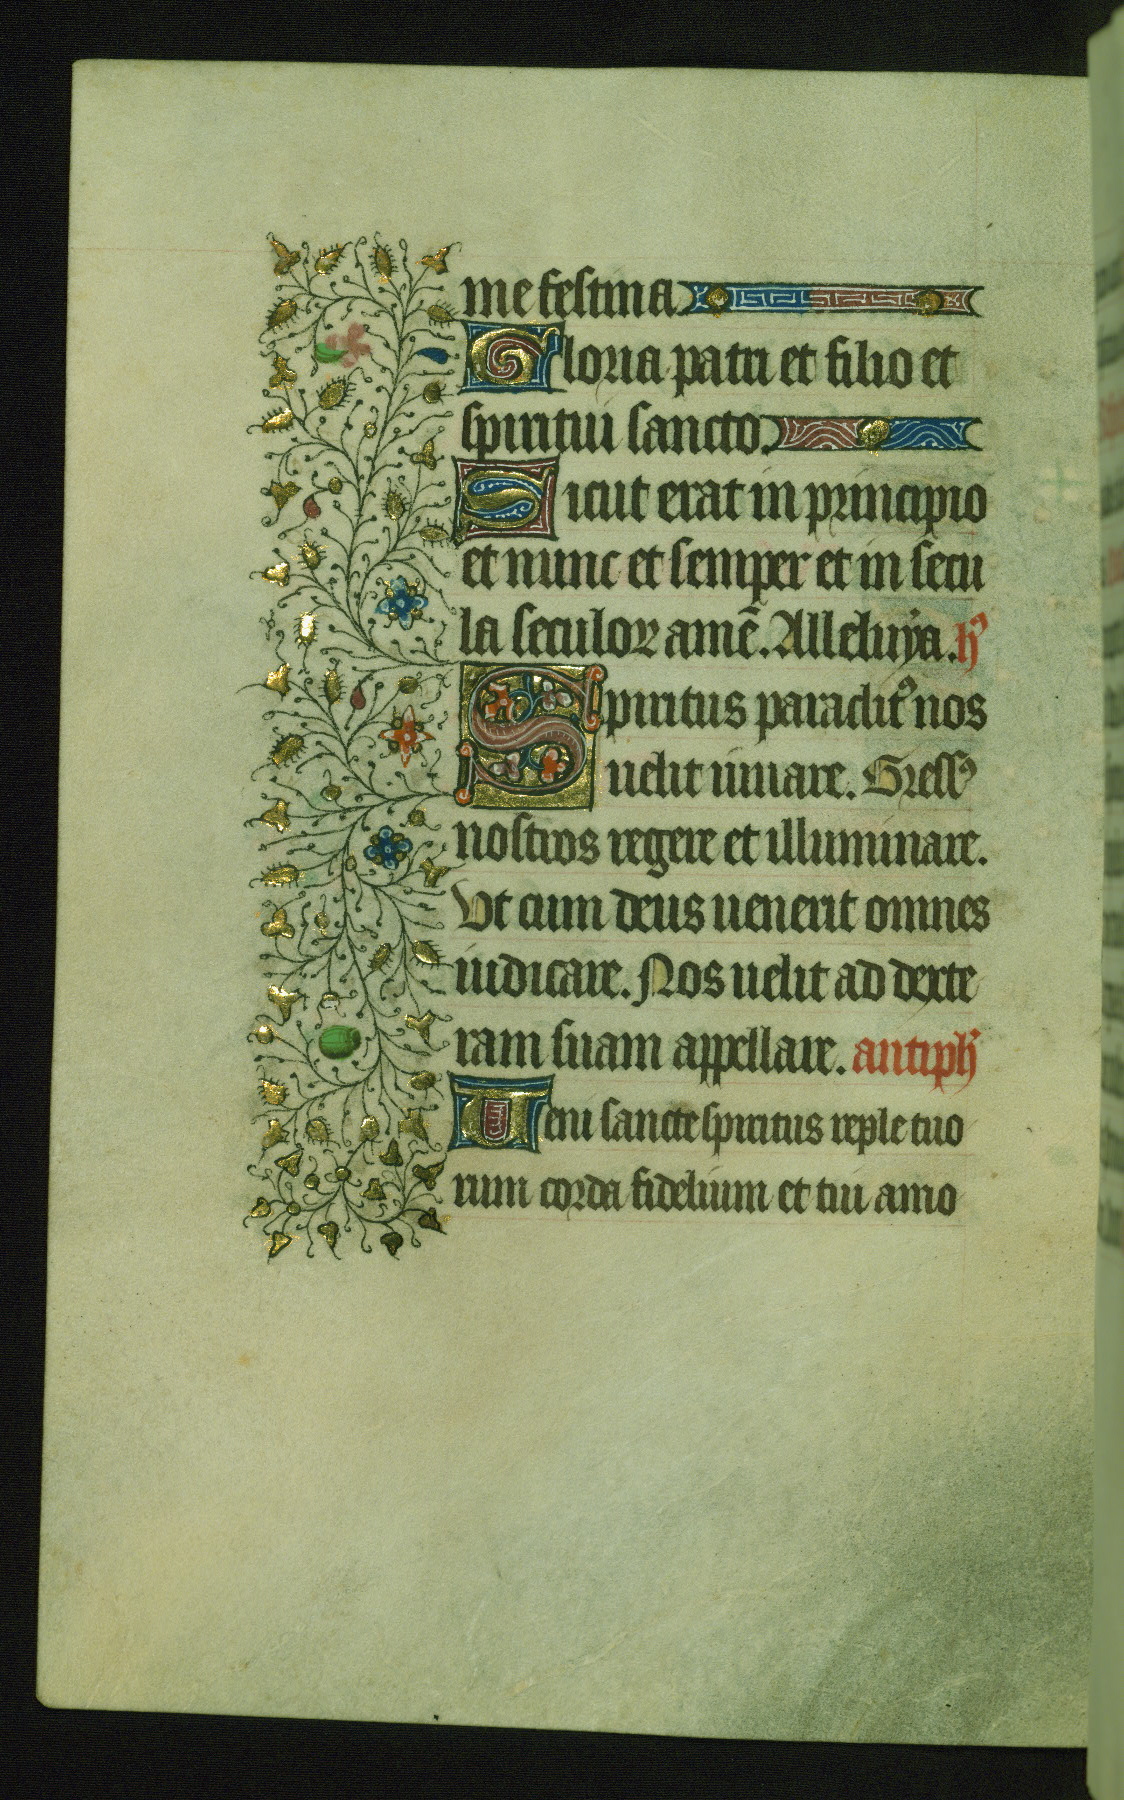 me festina.
Gloria patri et filio et
spiritui sancto.
Sicut erat in principio
et nunc et semper et in secu
la seculoꝝ amē. Alleluya. hꝰ
Spiritus paraclitꝰ nos
uelit iuuare. Gressꝰ
nostros regere et illuminare.
Vt cum deus uenerit omnes
iudicare. Nos uelit ad dexte
ram suam appellare. antiph̄
Ueni sancte spiritus reple tuo
rum corda fidelium et tui amo